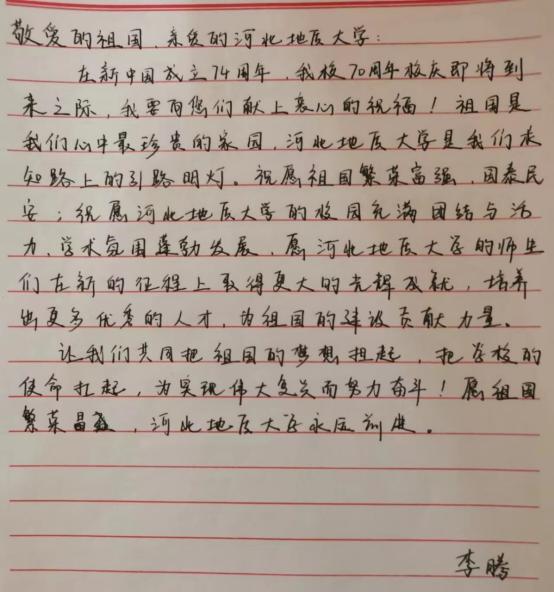 敬爱的祖国、亲爱的河北地质大学：
在新中国成立74周年，我校70周年校庆即将到
来之际，我要向您们献上衷心的祝福！祖国是
我们心中最珍贵的家园，河北地质大学是我们求
知路上的引路明灯。祝愿祖国繁荣富强，国泰民
安；祝愿河北地质大学的校园充满团结与活
力、学术氛围蓬勃发展，愿河北地质大学的师生
们在新的征程上取得更大的光辉成就，培养
出更多优秀的人才，为祖国的建设贡献力量。
让我们共同把祖国的梦想担起，把学校的
使命扛起，为实现伟大复兴而努力奋斗！愿祖国
繁荣昌盛，河北地质大学永远前进。
李腾